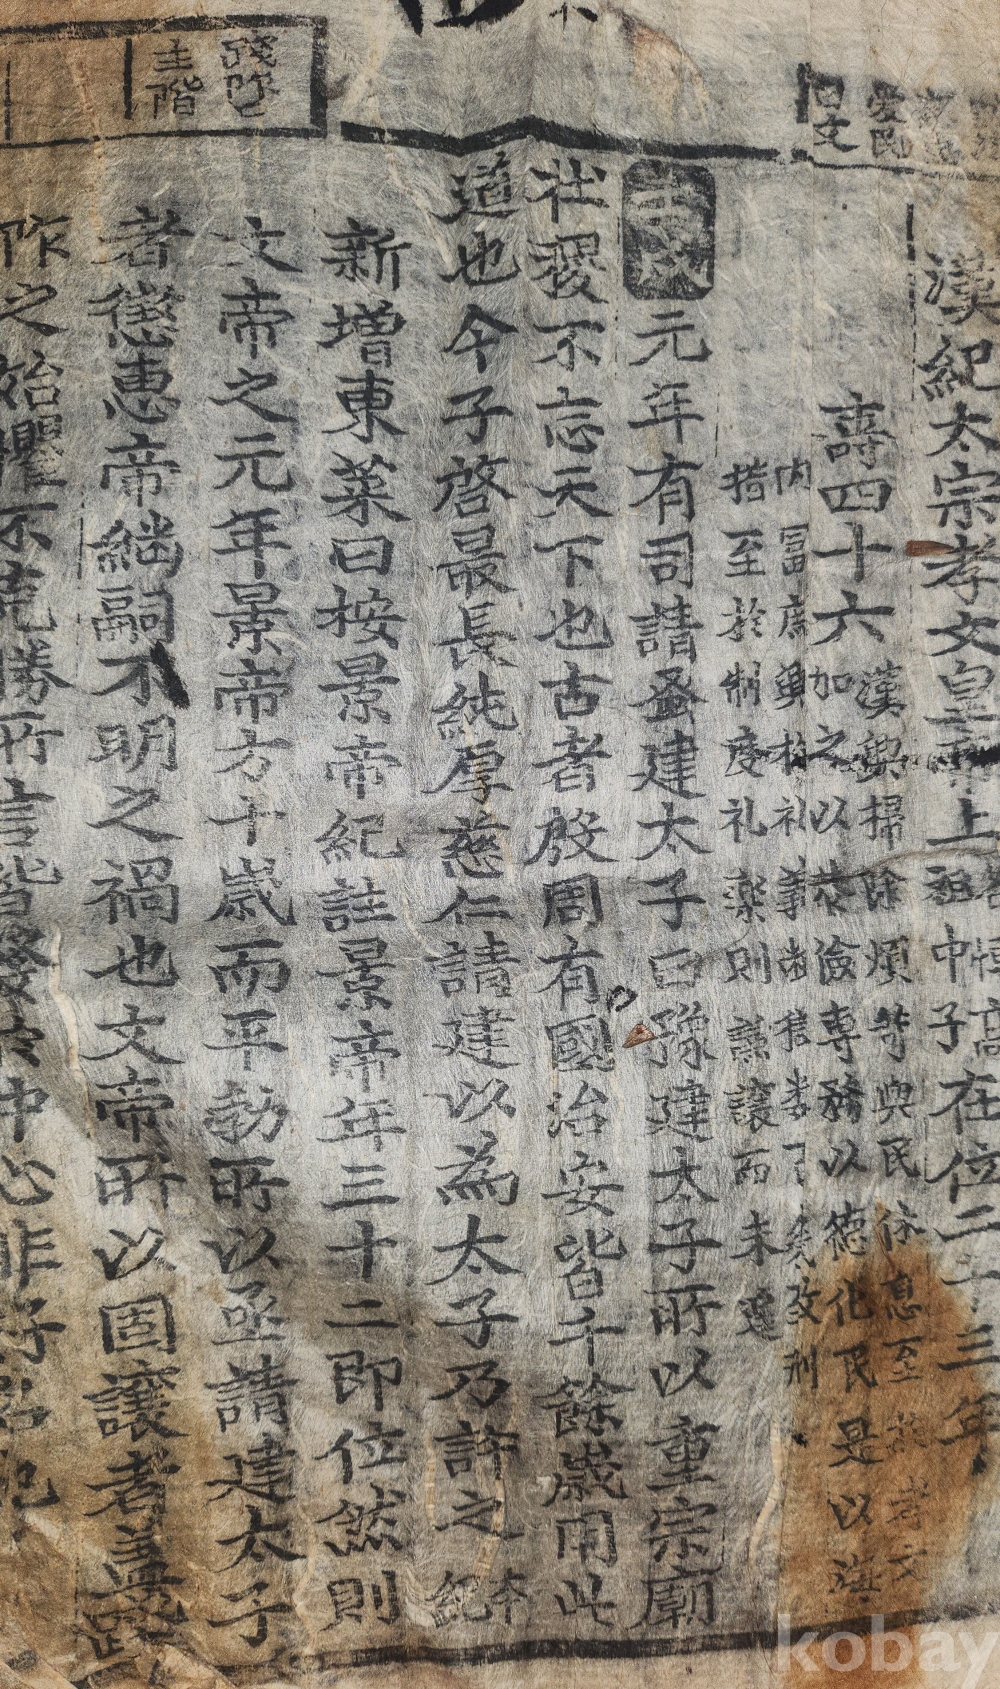 漢紀太宗孝文皇帝上
中子在位二十三年
壽四十六
漢興掃除煩苛與民休息至
加之以恭儉専務以德化民是以海
内冨庶興於礼義
措至於制度礼楽則謙譲而未遑
元年有司請蚤建太子曰豫建太子所以重宗廟
社稷不忘天下也古者殷周有國治安皆千餘歲用此
道也今子啓最長純厚慈仁請建以為太子乃許之
本
紀
新増東莱曰按景帝紀註景帝年三十二即位然則
文帝之元年景帝方十歲而平勃所以亟請建太子
者懲惠帝繼嗣不明之禍也文帝所以固讓者
阼之始懼不克勝所言皆發於中心非好名
主階
日文
愛民
kobay